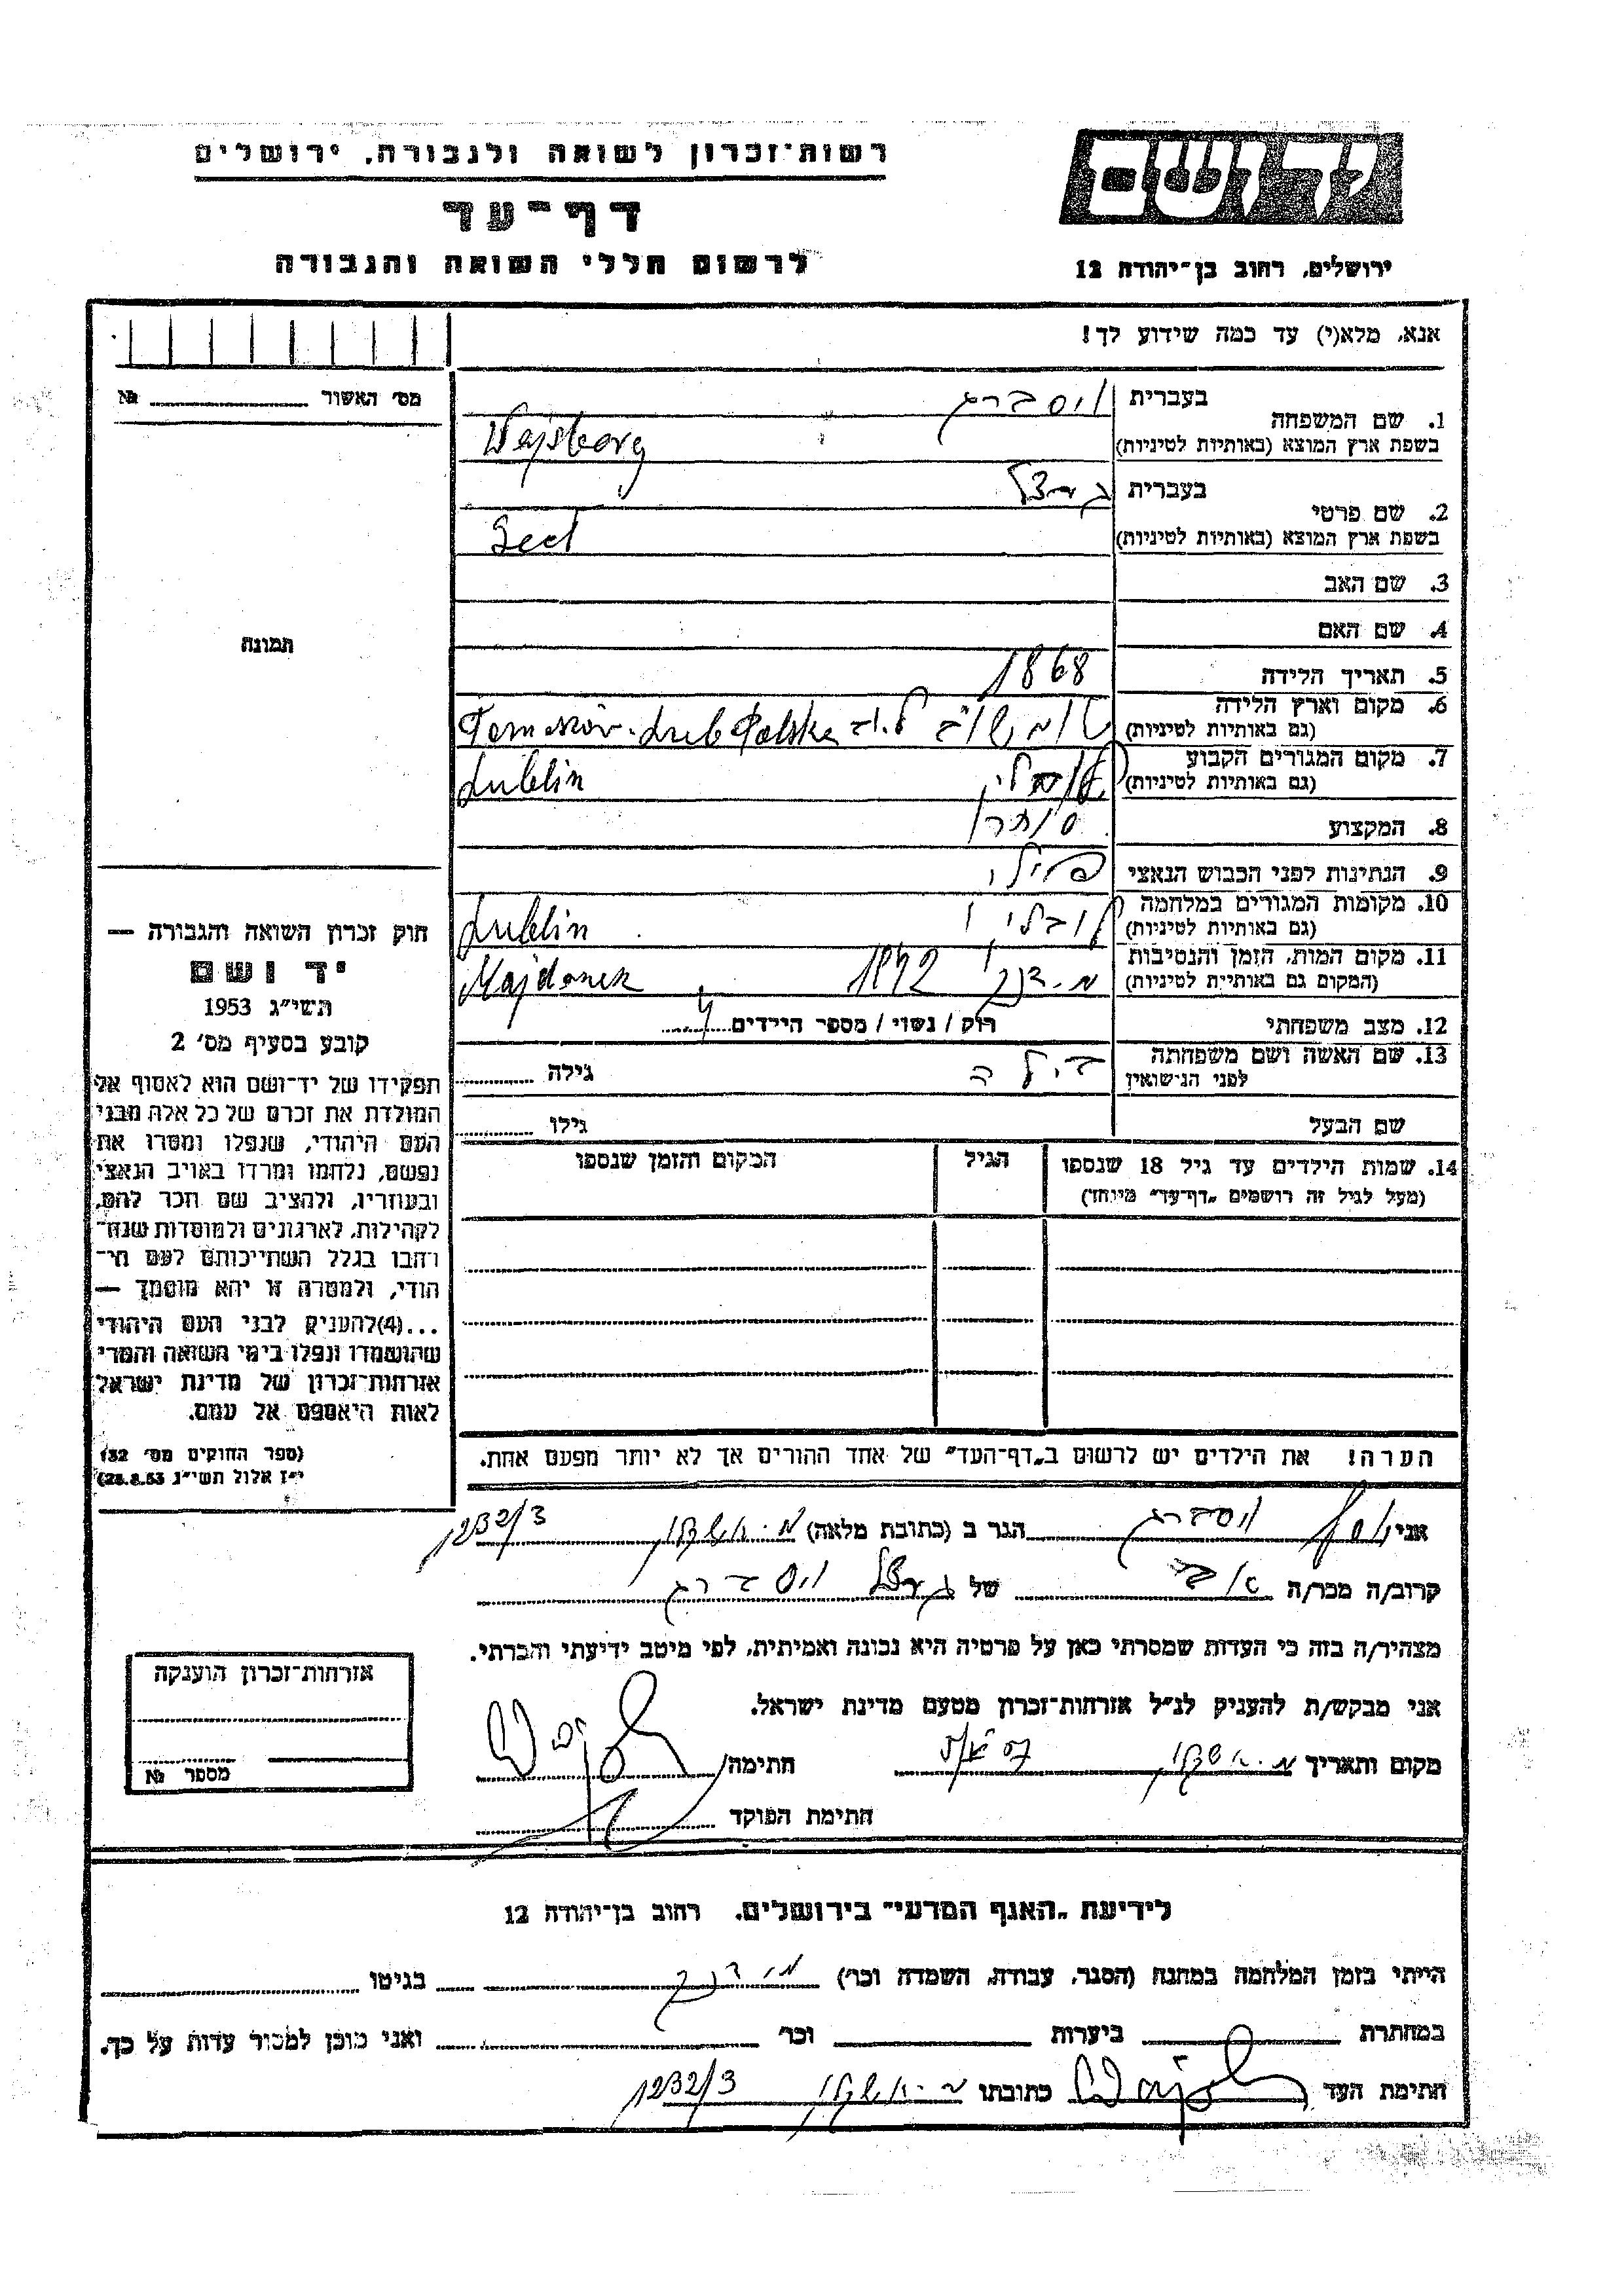 רשות־זכרון לשואה ולגבורה, ירושלים
יד ושם
דף־עד
לרשום חללי השואה והגבורה
ירושלים, רחוב בן־יהודה 12
אנא, מלא(י) עד כמה שידוע לך!
מס׳ האשור №
1. שם המשפחה
בעברית ויסברג
בשפת ארץ המוצא (באותיות לטיניות) Wajsberg
2. שם פרטי
בעברית
בשפת ארץ המוצא (באותיות לטיניות)
3. שם האב
4. שם האם
תמונה
5. תאריך הלידה 1868
6. מקום וארץ הלידה
(גם באותיות לטיניות) Tomaszów. Lub Polska
7. מקום המגורים הקבוע
(גם באותיות לטיניות) Lublin
8. המקצוע סוחר
9. הנתינות לפני הכבוש הנאצי פולני
10. מקומות המגורים במלחמה
(גם באותיות לטיניות) לובלין Lublin
11. מקום המות, הזמן והנסיבות
(המקום גם באותיות לטיניות) מידנק 1942 Majdanek
12. מצב משפחתי רוק / נשוי / מספר הילדים 4
13. שם האשה ושם משפחתה
לפני הנישואין גילה
שם הבעל גילו
14. שמות הילדים עד גיל 18 שנספו הגיל המקום והזמן שנספו
(מעל לגיל זה רושמים „דף־עד״ מיוחד)
חוק זכרון השואה והגבורה —
יד ושם
תשי״ג 1953
קובע בסעיף מס׳ 2
תפקידו של יד־ושם הוא לאסוף אל
המולדת את זכרם של כל אלה מבני
העם היהודי, שנפלו ומסרו את
נפשם, נלחמו ומרדו באויב הנאצי
ובעוזריו, ולהציב שם וזכר להם,
לקהילות, לארגונים ולמוסדות שנח־
רבו בגלל השתייכותם לעם הי־
הודי, ולמטרה זו יהא מוסמך —
...(4)להעניק לבני העם היהודי
שהושמדו ונפלו בימי השואה והמרי
אזרחות־זכרון של מדינת ישראל
לאות היאספם אל עמם.
(ספר החוקים מס׳ 132
י״ז אלול תשי״ג 28.8.53)
הערה! את הילדים יש לרשום ב„דף־העד״ של אחד ההורים אך לא יותר מפעם אחת.
אני יוסף ויסברג הגר ב (כתובת מלאה) מ. אשקלון 1232/3
קרוב/ה מכר/ה של ויסברג
מצהיר/ה בזה כי העדות שמסרתי כאן על פרטיה היא נכונה ואמיתית, לפי מיטב ידיעתי והכרתי.
אני מבקש/ת להעניק לנ״ל אזרחות־זכרון מטעם מדינת ישראל.
מקום ותאריך מ. אשקלון חתימה
חתימת הפוקד
אזרחות־זכרון הוענקה
מספר №
לידיעת „האגף המדעי״ בירושלים. רחוב בן־יהודה 12
הייתי בזמן המלחמה במחנה (הסגר, עבודה, השמדה וכר׳) מידנק בגיטו
במחתרת ביערות וכר׳ ואני מוכן למסור עדות על כך.
חתימת העד כתובתו מ. אשקלון 1232/3